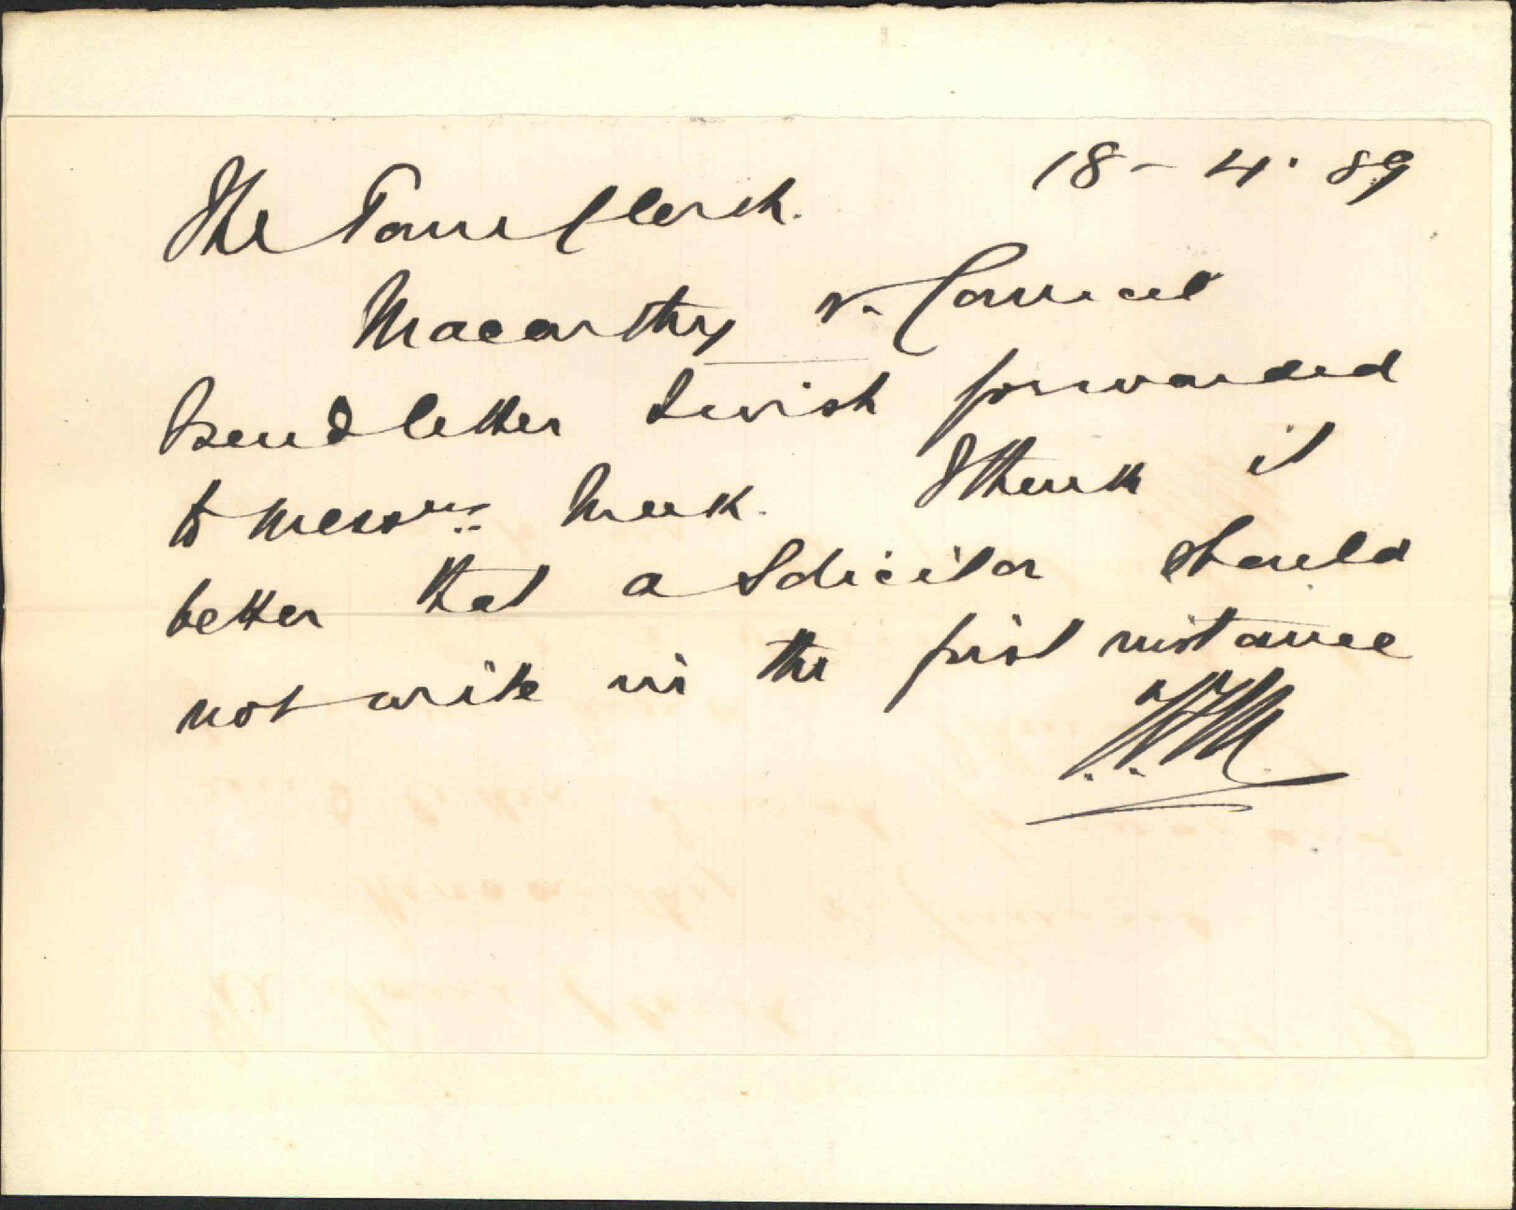 The Town Clerk. 18 - 4 . 89
Macarthy v. Council
I send letter I wish forwarded
to Messrs: Meek. I think it
better that a Solicitor should
not write in the first instance